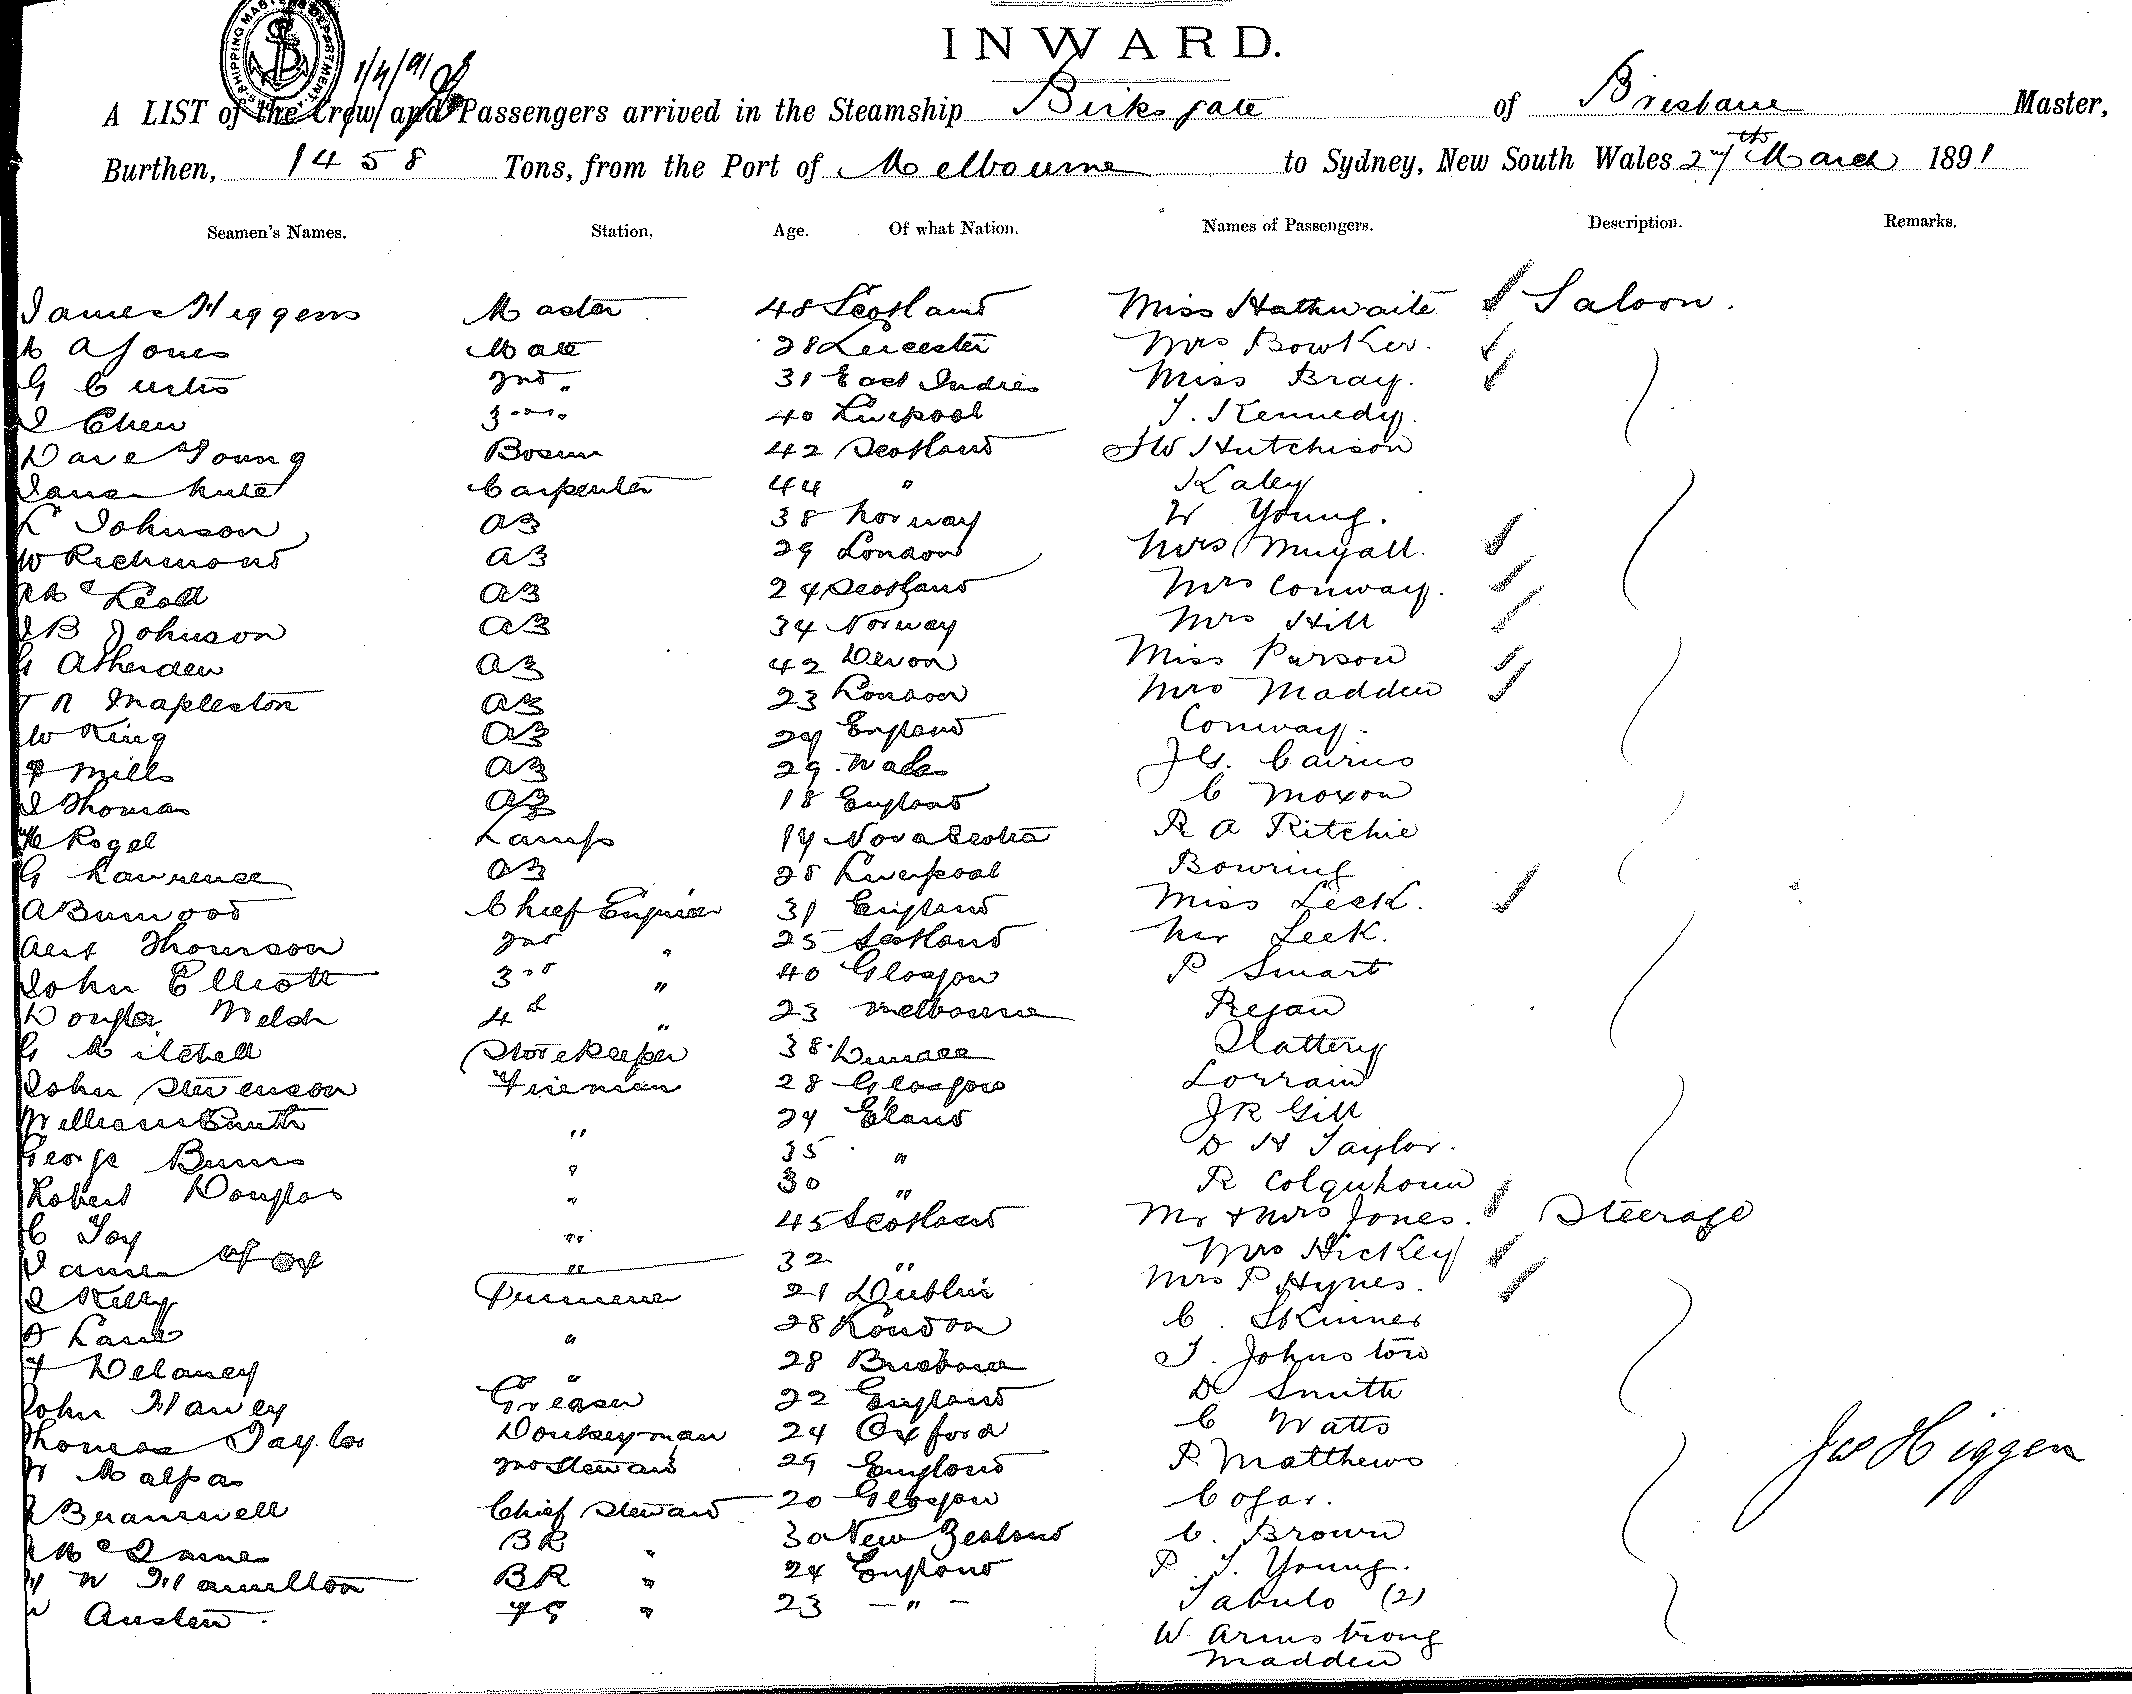 INWARD.
SHIPPING MASTER'S DEPARTMENT
1/4/91
A LIST of the Crew and Passengers arrived in the Steamship Birksgate of Brisbane Master,
Burthen, 1458 Tons, from the Port of Melbourne to Sydney, New South Wales 27th March 1891
Seamen's Names. Station. Age. Of what Nation. Names of Passengers. Description. Remarks.
James Higgens Master 48 Scotland Miss Hathwaite Saloon.
A Jones Mate 28 Leicester Mrs Bowker.
G Curtis 2nd " 31 East Indies Miss Bray.
Chew 3rd " 40 Liverpool T. Kennedy.
Dave Young Bosun 42 Scotland JW Hutchison
Carpenter 44 " Kaley
Johnson AB 38 Norway W Young.
W Richmond AB 29 London Mrs
McLeod AB 24 Scotland Mrs Conway.
B Johnson AB 34 Norway Mrs Hill
G Atherden AB 42 Devon Miss Purson
R Mapleston AB 23 London Mrs Madden
W King AB 24 England Conway.
Mills AB 29 Wales JG. Cairns
J Thomas AB 18 England C Moxon
Rogel Lamps 19 Nova Scotia R A Ritchie
G Lawrence AB 28 Liverpool Bowring
A Burwood Chief Engineer 31 England Miss Leek.
Thomson 2nd " 25 Scotland Mr Leek.
John Elliott 3rd " 40 Glasgow P Smart
Douglas Welch 4th " 23 Melbourne Regan
G Mitchell Storekeeper 38 Dundee Slattery
John Stevenson Fireman 28 Glasgow Lorrain
William Smith " 24 JR Gill
George Burns " 35 " D H Taylor.
Robert Douglas " 30 " R Colquhoun
C Toy " 45 Scotland Mr & Mrs Jones. Steerage
James Fox " 32 " Mrs Hickey
J Kelly 21 Dublin Mrs P Hynes.
Lane " 28 London C. Skinner
Delaney " 28 Brisbane J. Johnston
John Haney Greaser 22 England D Smith
Thomas Taylor Donkeyman 24 Oxford C Watts
Malpas 2nd Steward 29 England R Matthews
Bramwell Chief Steward 20 Glasgow Cogar.
McJames BR " 30 New Zealand C. Brown
W Hamilton BR " 24 England P. J. Young.
Austen FG " 23 - " - Tabulo (2)
W Armstrong
Madden
Jas Higgen